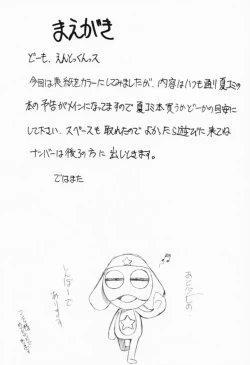 まえがき
どーも、えんどっくんっス
今回は表紙をカラーにしてみましたが、内容はいつも通り夏コミの
本の予告がメインになってますので夏コミ本買うかどーかの目安に
して下さい、スペースも取れたのでよかったら遊びに来てね
ナンバーは後ろの方に出しときます。
ではまた
であります